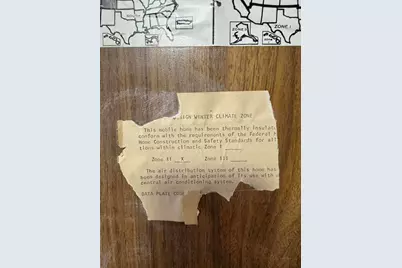 ZONE 1
ZONE 2
DESIGN WINTER CLIMATE ZONE
This mobile home has been thermally insulated
conform with the requirements of the Federal
Home Construction and Safety Standards for all
tions within climatic Zone I
Zone II X Zone III
The air distribution system of this home has
been designed in anticipation of its use with
general air conditioning system.
DATA PLATE CODE